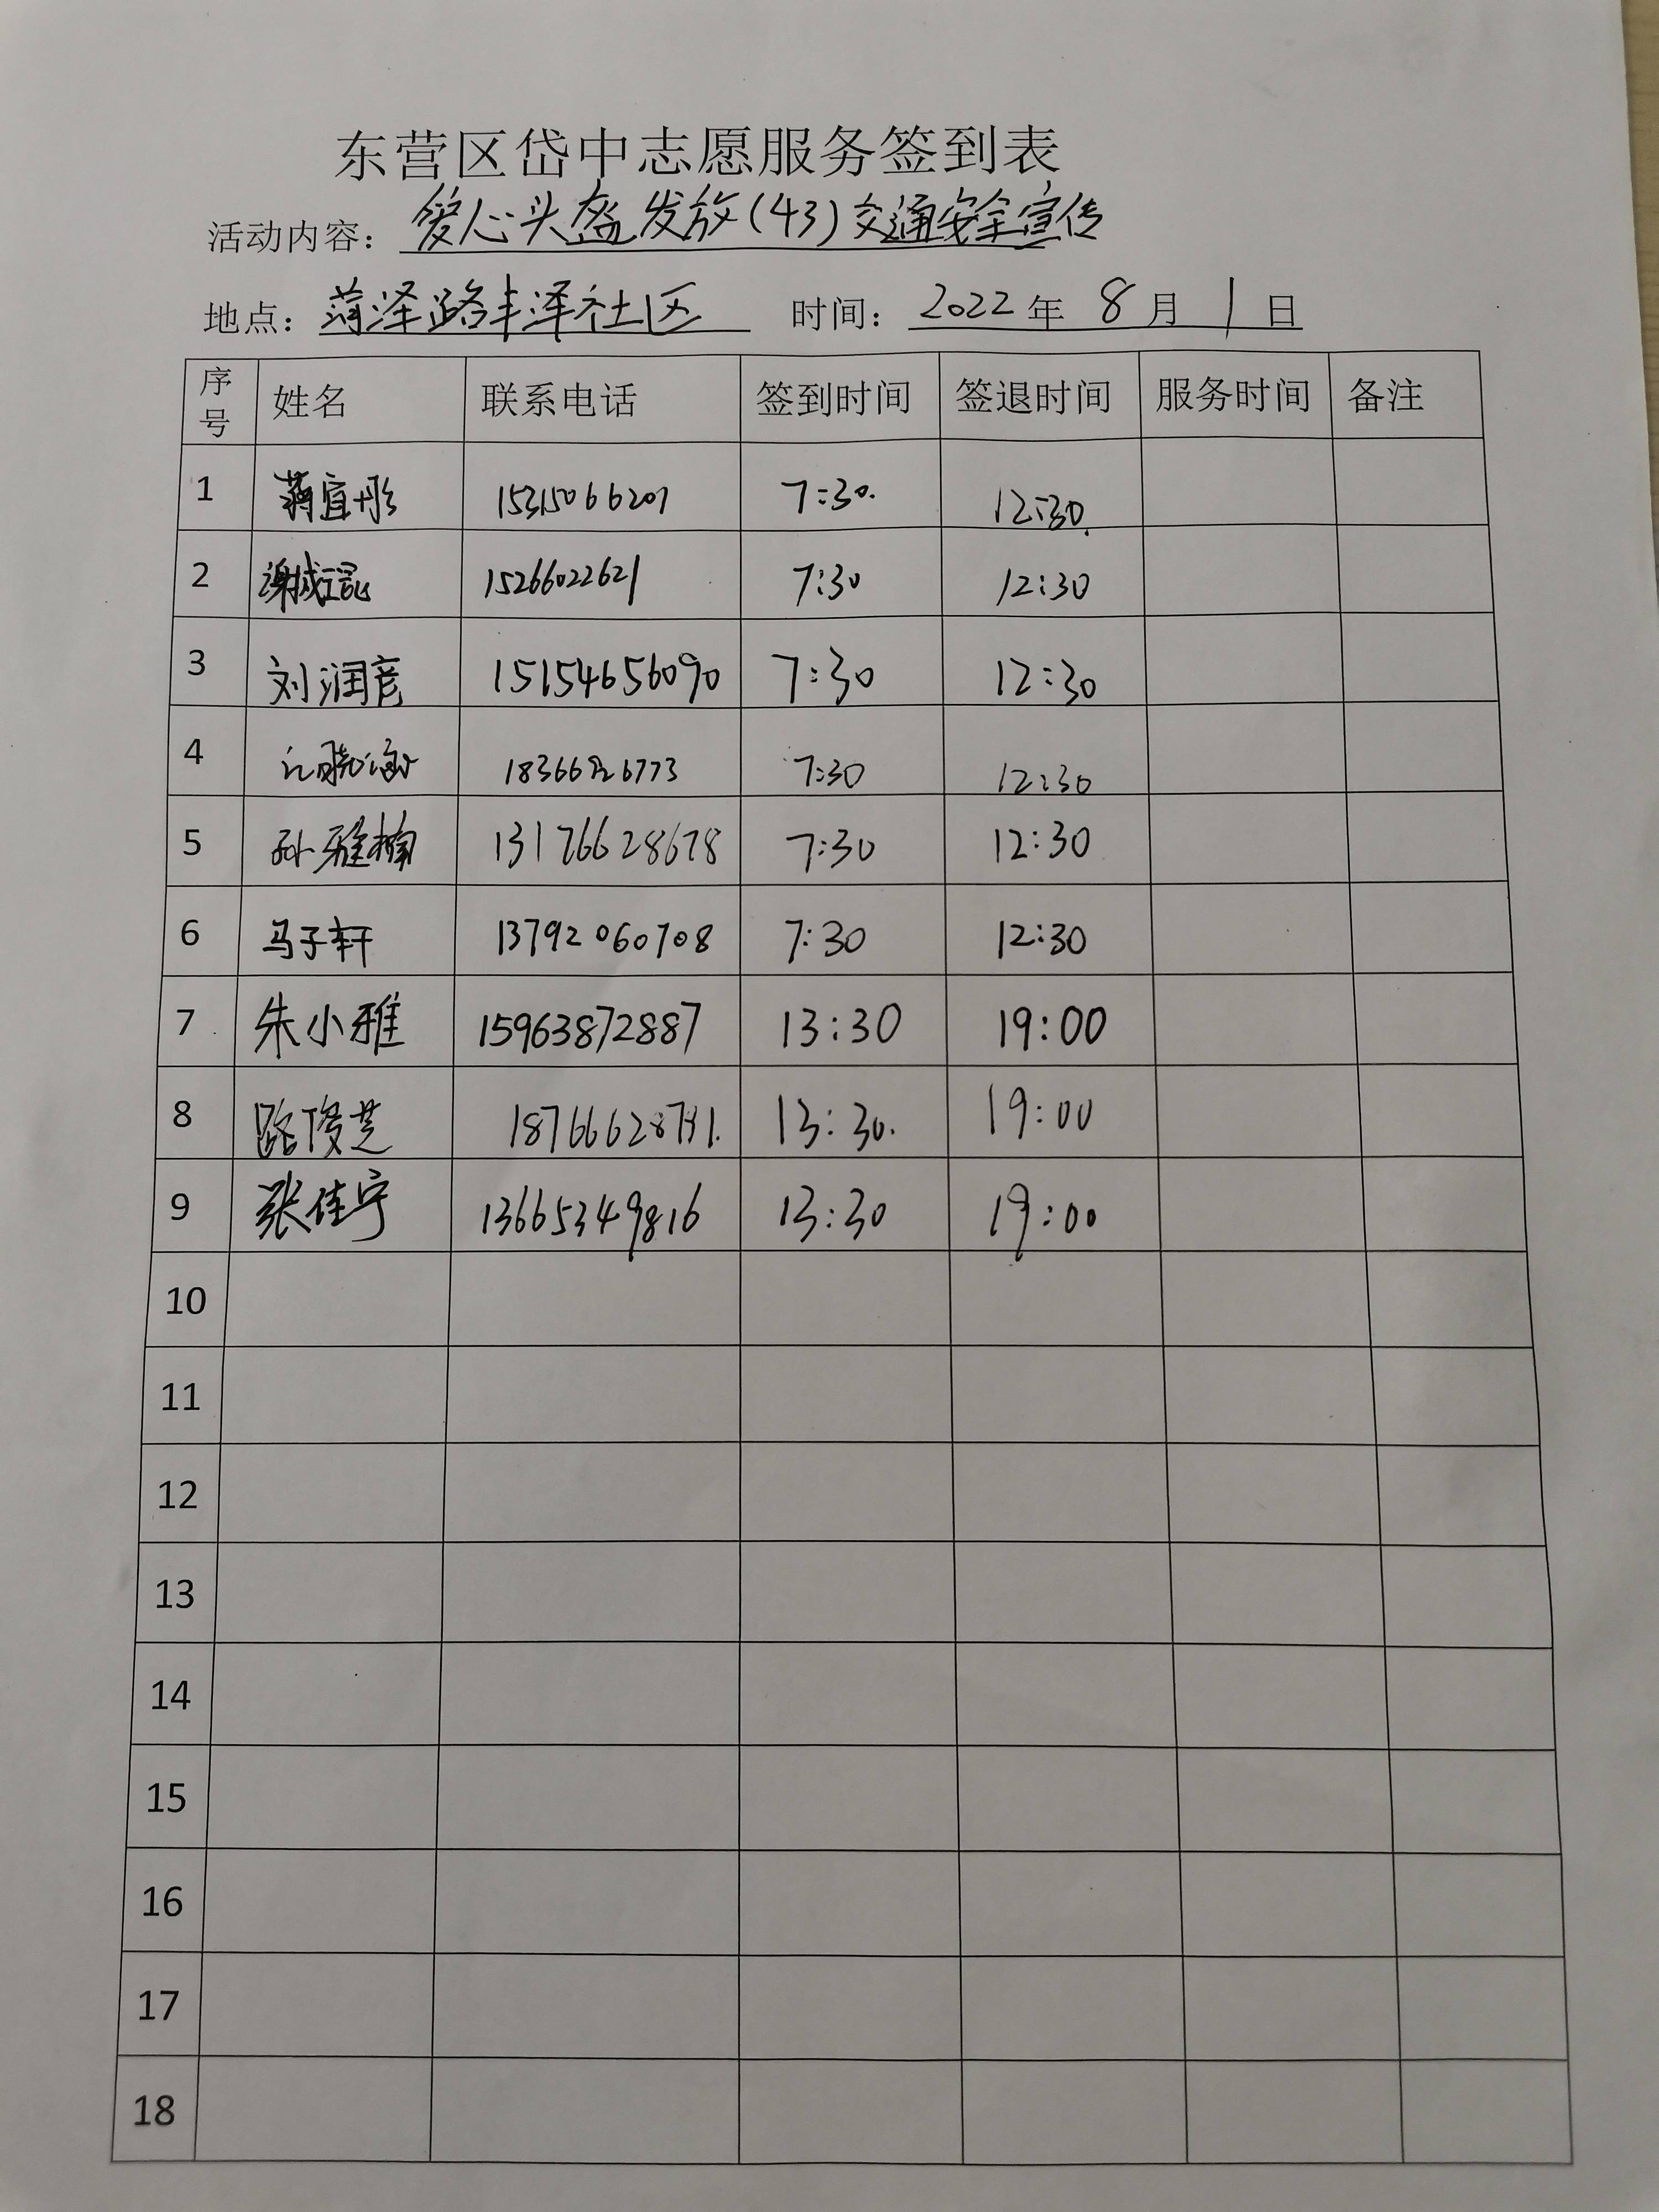 东营区岱中志愿服务签到表
活动内容：爱心头盔发放（43）交通安全宣传
地点：菏泽路丰泽社区 时间：2022年8月1日
序号 姓名 联系电话 签到时间 签退时间 服务时间 备注
1 蒋宜彤 15315066201 7:30. 12:30.
2 15266022621 7:30 12:30
3 刘润彦 15154656090 7:30 12:30
4 7:30 12:30
5 孙雅楠 13176628678 7:30 12:30
6 马子轩 13792060708 7:30 12:30
7 朱小雅 15963872887 13:30 19:00
8 路俊芝 13:30. 19:00
9 张佳宁 13665349816 13:30 19:00
10
11
12
13
14
15
16
17
18